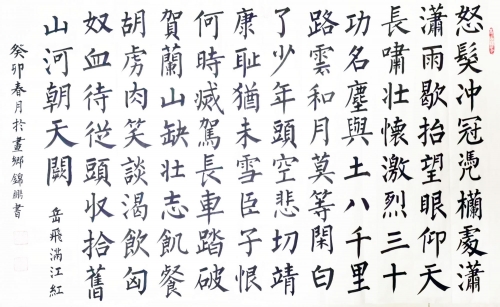 怒髮冲冠凴欄處瀟
瀟雨歇抬望眼仰天
長嘯壯懷激烈三十
功名塵與土八千里
路雲和月莫等閑白
了少年頭空悲切靖
康耻猶未雪臣子恨
何時滅駕長車踏破
賀蘭山缺壯志飢餐
胡虜肉笑談渴飲匈
奴血待從頭收拾舊
山河朝天闕
岳飛滿江紅
癸卯春月於畫鄉錦鵬書